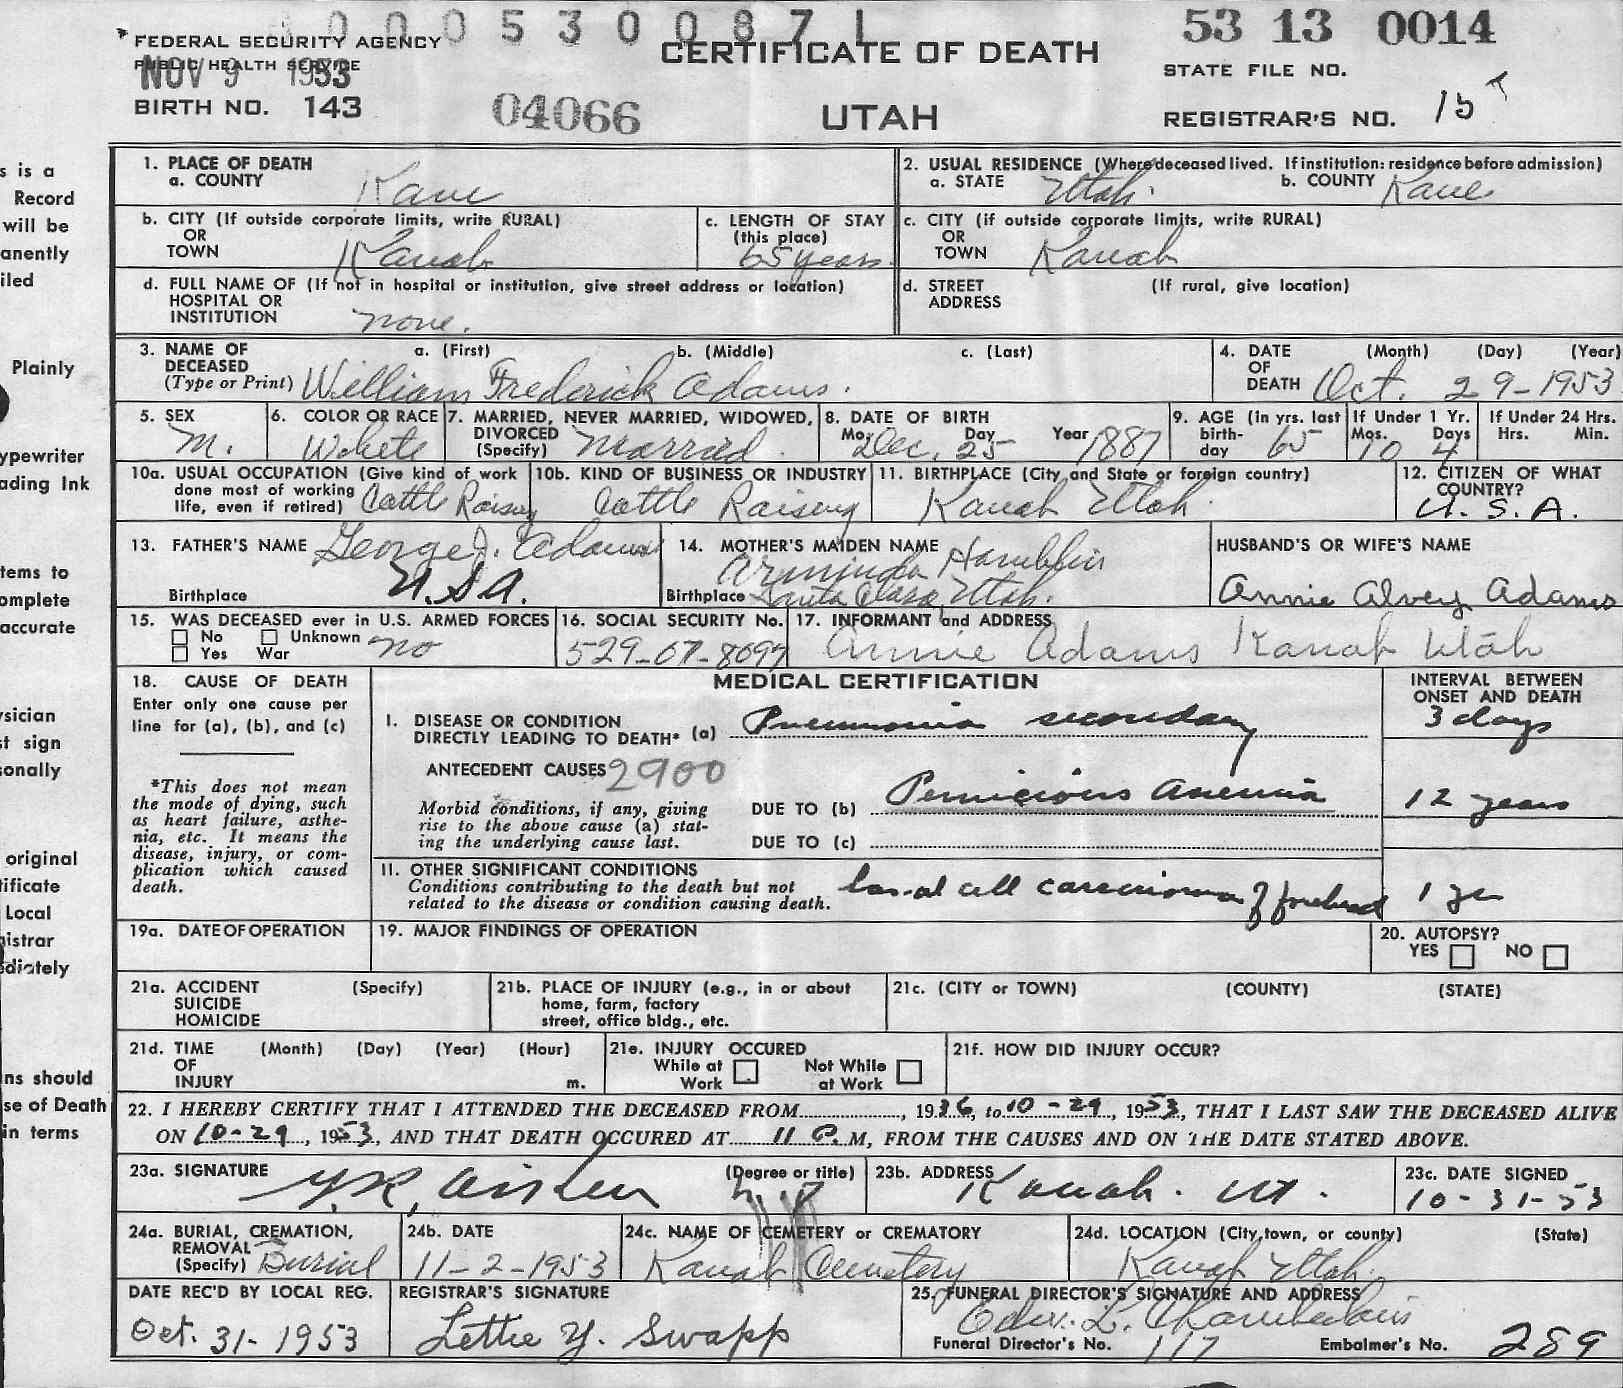 0 0 0 5 3 0 0 8 7 1
53 13 0014
FEDERAL SECURITY AGENCY
PUBLIC HEALTH SERVICE
NOV 9 1953
CERTIFICATE OF DEATH
STATE FILE NO.
BIRTH NO. 143
04066
UTAH
REGISTRAR'S NO. 15
s is a
Record
will be
anently
iled
Plainly
ypewriter
ading Ink
tems to
omplete
accurate
ysician
st sign
sonally
original
tificate
Local
istrar
ediately
ns should
se of Death
in terms
1. PLACE OF DEATH
a. COUNTY Kane
2. USUAL RESIDENCE (Where deceased lived. If institution: residence before admission)
a. STATE Utah. b. COUNTY Kane
b. CITY (If outside corporate limits, write RURAL)
OR
TOWN Kanab
c. LENGTH OF STAY
(this place)
65 years
c. CITY (if outside corporate limits, write RURAL)
OR
TOWN Kanab
d. FULL NAME OF (If not in hospital or institution, give street address or location)
HOSPITAL OR
INSTITUTION none.
d. STREET (If rural, give location)
ADDRESS
3. NAME OF a. (First) b. (Middle) c. (Last)
DECEASED
(Type or Print) William Frederick Adams.
4. DATE (Month) (Day) (Year)
OF
DEATH Oct. 29-1953
5. SEX
M.
6. COLOR OR RACE
White
7. MARRIED, NEVER MARRIED, WIDOWED,
DIVORCED
(Specify) Married
8. DATE OF BIRTH
Mo. Day Year
Dec. 25 1887
9. AGE (in yrs. last
birth-
day 65
If Under 1 Yr.
Mos. Days
10 4
If Under 24 Hrs.
Hrs. Min.
10a. USUAL OCCUPATION (Give kind of work
done most of working
life, even if retired) Cattle Raising
10b. KIND OF BUSINESS OR INDUSTRY
Cattle Raising
11. BIRTHPLACE (City and State or foreign country)
Kanab Utah
12. CITIZEN OF WHAT
COUNTRY?
U. S. A.
13. FATHER'S NAME George J. Adams
Birthplace U.S.A.
14. MOTHER'S MAIDEN NAME Hamblin
Arminda
Birthplace Santa Clara, Utah.
HUSBAND'S OR WIFE'S NAME
Annie Alvey Adams
15. WAS DECEASED ever in U.S. ARMED FORCES
No Unknown no
Yes War
16. SOCIAL SECURITY No.
529-07-8097
17. INFORMANT and ADDRESS
Annie Adams Kanab Utah
18. CAUSE OF DEATH
Enter only one cause per
line for (a), (b), and (c)
*This does not mean
the mode of dying, such
as heart failure, asthe-
nia, etc. It means the
disease, injury, or com-
plication which caused
death.
MEDICAL CERTIFICATION
INTERVAL BETWEEN
ONSET AND DEATH
I. DISEASE OR CONDITION
DIRECTLY LEADING TO DEATH* (a) Pneumonia secondary 3 days
ANTECEDENT CAUSES 2900
Morbid conditions, if any, giving
rise to the above cause (a) stat-
ing the underlying cause last.
DUE TO (b) Pernicious Anemia 12 years
DUE TO (c)
11. OTHER SIGNIFICANT CONDITIONS
Conditions contributing to the death but not
related to the disease or condition causing death.
basal cell carcinoma of forehead 1 yr
19a. DATE OF OPERATION
19. MAJOR FINDINGS OF OPERATION
20. AUTOPSY?
YES NO
21a. ACCIDENT (Specify)
SUICIDE
HOMICIDE
21b. PLACE OF INJURY (e.g., in or about
home, farm, factory
street, office bldg., etc.
21c. (CITY or TOWN) (COUNTY) (STATE)
21d. TIME (Month) (Day) (Year) (Hour)
OF
INJURY m.
21e. INJURY OCCURED
While at Work Not While at Work
21f. HOW DID INJURY OCCUR?
22. I HEREBY CERTIFY THAT I ATTENDED THE DECEASED FROM , 1936, to 10-29, 1953, THAT I LAST SAW THE DECEASED ALIVE
ON 10-29, 1953, AND THAT DEATH OCCURED AT 11 P. M, FROM THE CAUSES AND ON THE DATE STATED ABOVE.
23a. SIGNATURE (Degree or title)
23b. ADDRESS
Kanab. Ut.
23c. DATE SIGNED
10-31-53
24a. BURIAL, CREMATION,
REMOVAL
(Specify) Burial
24b. DATE
11-2-1953
24c. NAME OF CEMETERY or CREMATORY
Kanab Cemetery
24d. LOCATION (City, town, or county) (State)
Kanab Utah.
DATE REC'D BY LOCAL REG.
Oct. 31-1953
REGISTRAR'S SIGNATURE
Lettie Y. Swapp
25. FUNERAL DIRECTOR'S SIGNATURE AND ADDRESS
Edw. L. Chamberlain
Funeral Director's No. 117 Embalmer's No. 289